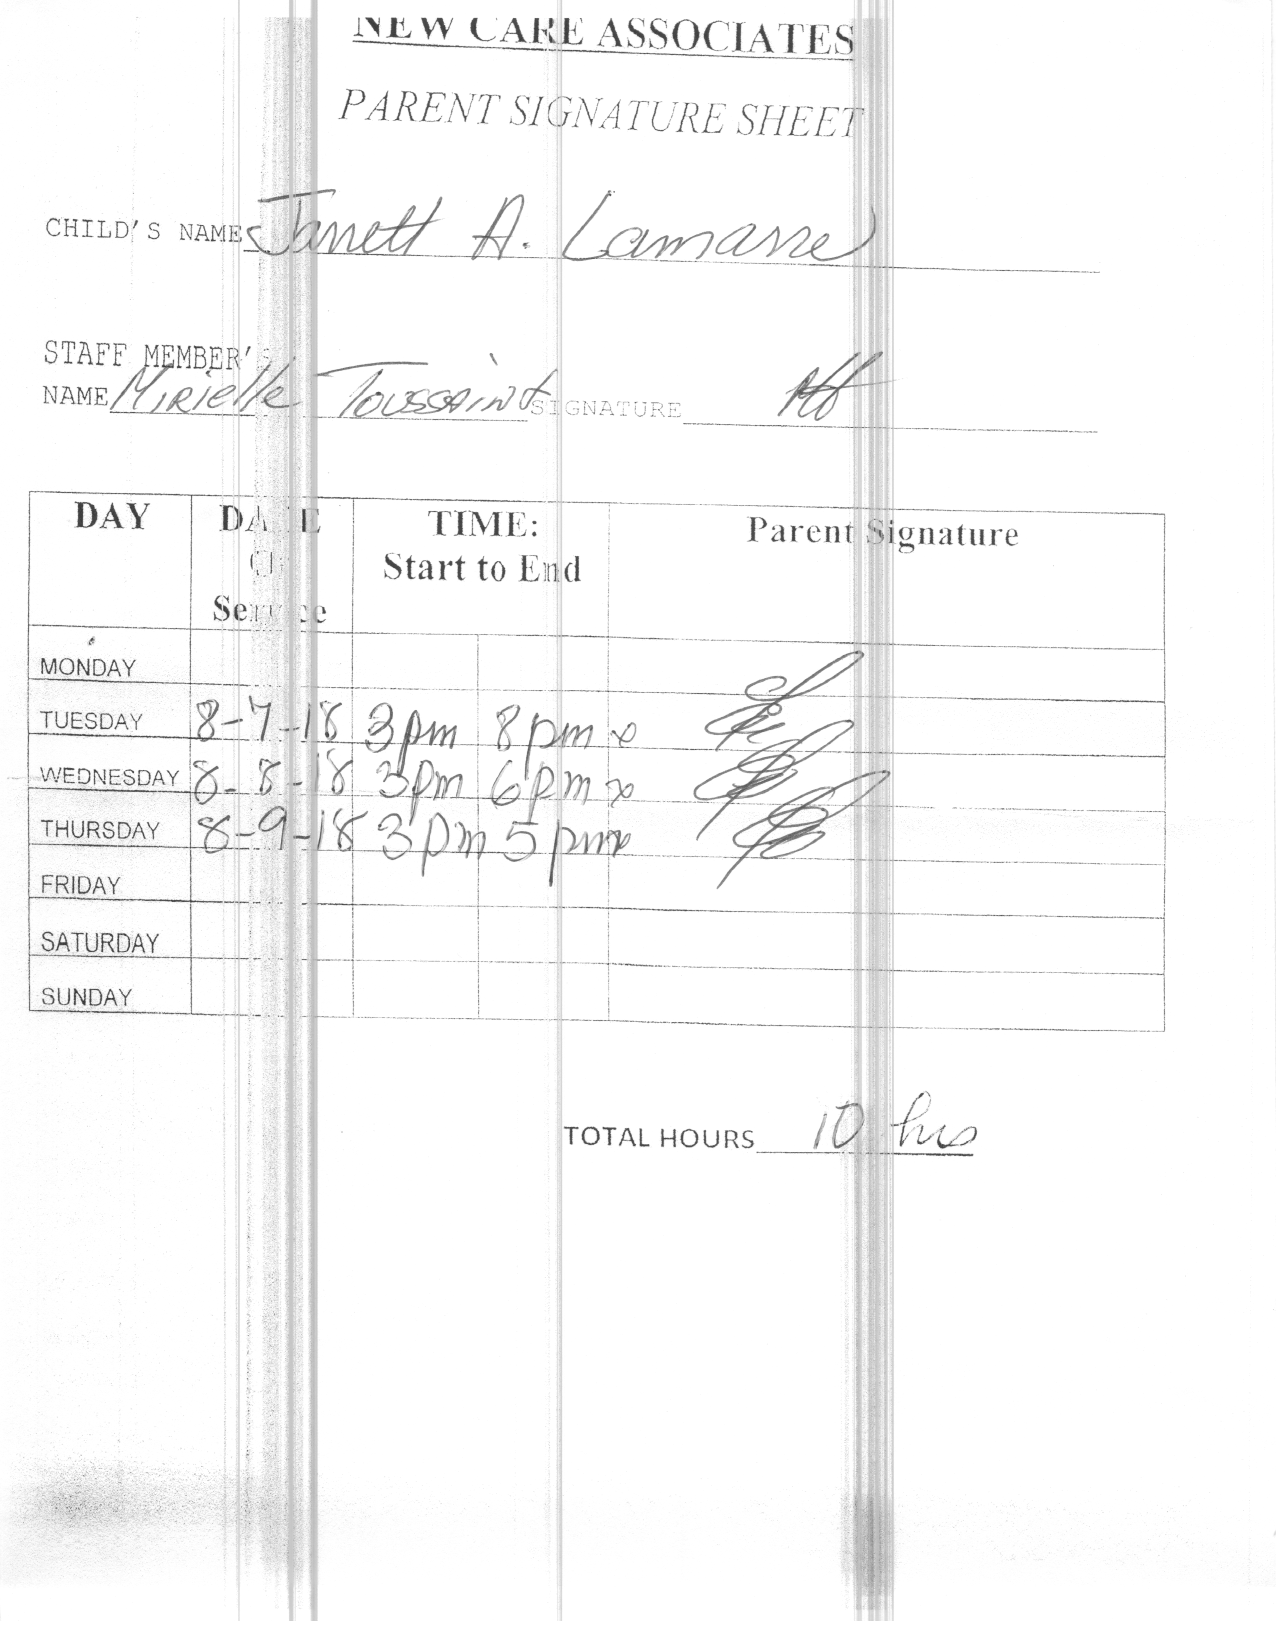 NEW CARE ASSOCIATES
PARENT SIGNATURE SHEET
CHILD'S NAME Jarrett A. Lamarre
STAFF MEMBER'S
NAME Mirielle Toussaint SIGNATURE
DAY DATE Of Service TIME: Start to End Parent Signature
MONDAY
TUESDAY 8-7-18 3pm 8pm x
WEDNESDAY 8-8-18 3pm 6pm x
THURSDAY 8-9-18 3pm 5pm x
FRIDAY
SATURDAY
SUNDAY
TOTAL HOURS 10 hrs